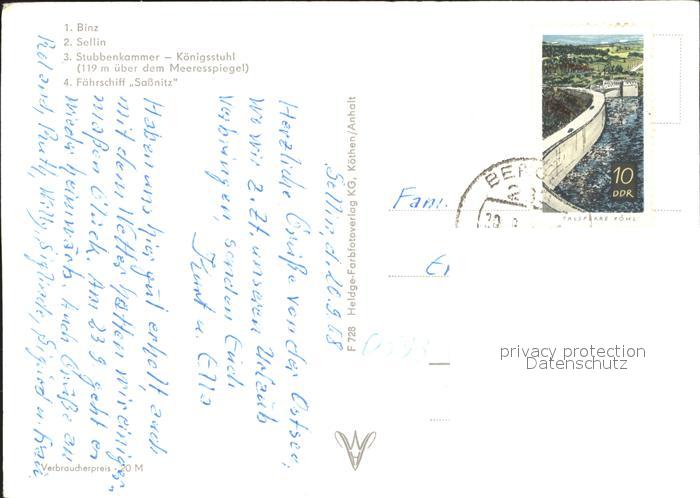 1. Binz
2. Sellin
3. Stubbenkammer – Königsstuhl
(119 m über dem Meeresspiegel)
4. Fährschiff „Saßnitz"
Sellin, d. 20.9.68
Herzliche Grüße von der Ostsee,
wo wir z. Zt. unseren Urlaub
verbringen, senden Euch
Kurt u. Ella
Haben uns hier gut erholt, auch
mit dem Wetter hatten wir einiger-
maßen Glück. Am 23.9. geht es
wieder heimwärts. Auch Grüße an
Roland, Ruth, Willy, Sieglinde, Sigrid u. Frau.
F 728 Heldge-Farbfotoverlag KG, Köthen/Anhalt
Verbraucherpreis -,20 M
Fam.
BERG
10
DDR
TALSPERRE PÖHL
privacy protection
Datenschutz